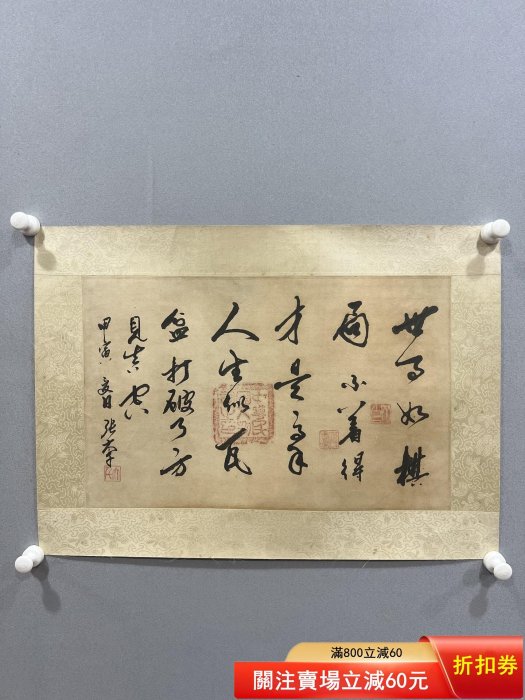 世事如棋
局不着得
才是高手
人生似瓦
盆打破了方
見真空
甲寅夏日張
滿800立減60
關注賣場立減60元
折扣券